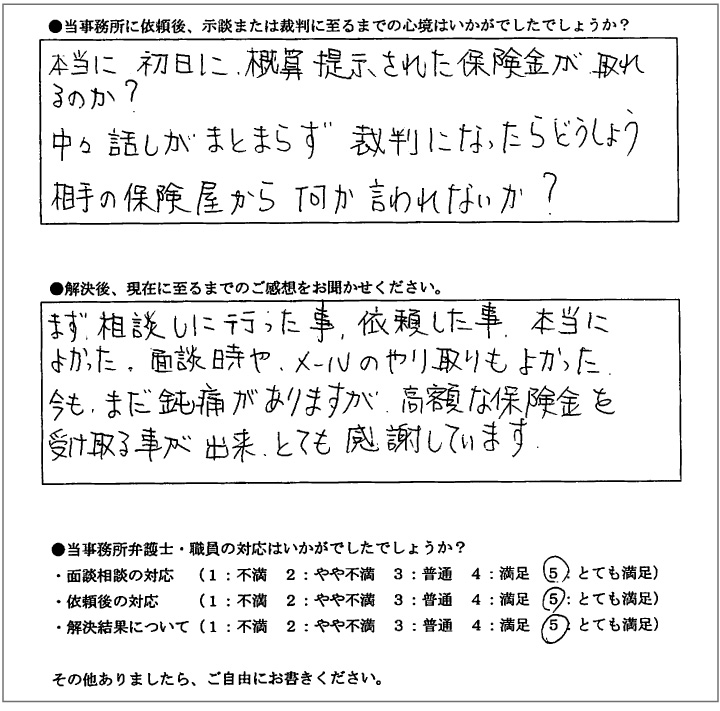 ●当事務所に依頼後、示談または裁判に至るまでの心境はいかがでしたでしょうか？
本当に 初日に、概算提示された保険金が、取れ
るのか？
中々 話しがまとまらず 裁判になったらどうしよう
相手の保険屋から 何か言われないか？
●解決後、現在に至るまでのご感想をお聞かせください。
まず、相談しに行った事、依頼した事、本当に
よかった。面談時や、メールのやり取りもよかった。
今も、まだ鈍痛がありますが、高額な保険金を
受け取る事が出来、とても感謝しています。
●当事務所弁護士・職員の対応はいかがでしたでしょうか？
・面談相談の対応 （１：不満 ２：やや不満 ３：普通 ４：満足 ５：とても満足）
・依頼後の対応 （１：不満 ２：やや不満 ３：普通 ４：満足 ５：とても満足）
・解決結果について（１：不満 ２：やや不満 ３：普通 ４：満足 ５：とても満足）
その他ありましたら、ご自由にお書きください。